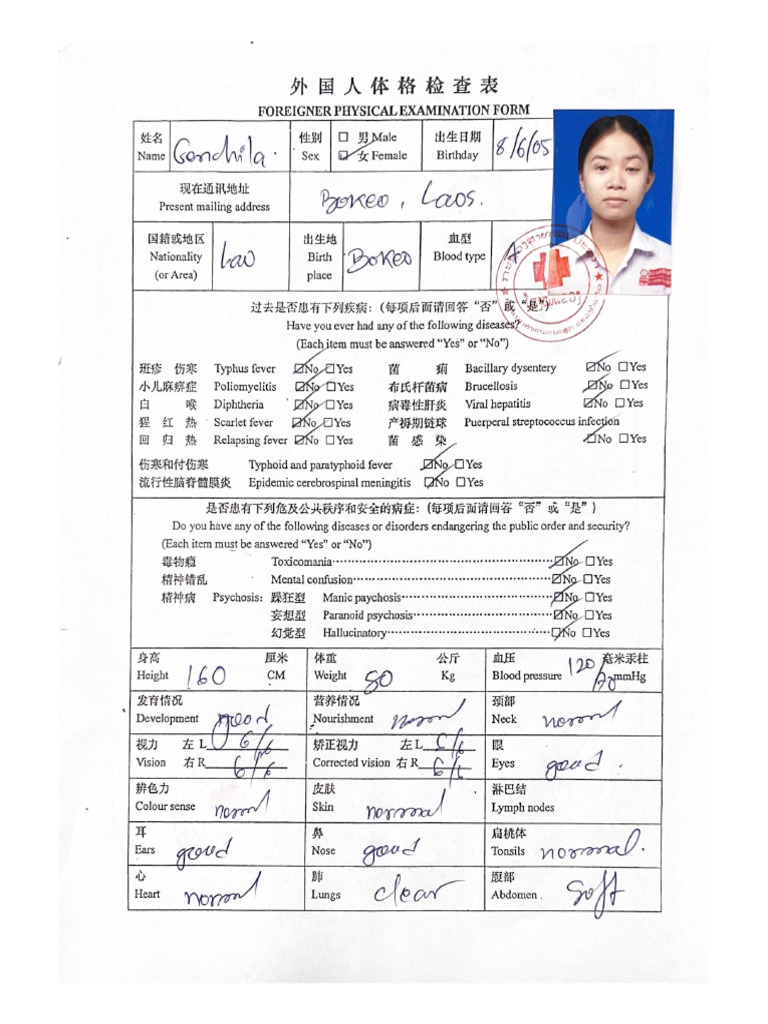 外国人体格检查表
FOREIGNER PHYSICAL EXAMINATION FORM
姓名 Name 性别 Sex □ 男 Male ☑ 女 Female 出生日期 Birthday 8/6/05
现在通讯地址 Present mailing address Bokeo, Laos.
国籍或地区 Nationality (or Area) Lao 出生地 Birth place Bokeo 血型 Blood type
过去是否患有下列疾病：(每项后面请回答“否”或“是”)
Have you ever had any of the following diseases?
(Each item must be answered “Yes” or “No”)
班疹 伤寒 Typhus fever ☑No □Yes 菌 痢 Bacillary dysentery ☑No □Yes
小儿麻痹症 Poliomyelitis ☑No □Yes 布氏杆菌病 Brucellosis ☑No □Yes
白 喉 Diphtheria ☑No □Yes 病毒性肝炎 Viral hepatitis ☑No □Yes
猩 红 热 Scarlet fever ☑No □Yes 产褥期链球 Puerperal streptococcus infection
回 归 热 Relapsing fever ☑No □Yes 菌 感 染 ☑No □Yes
伤寒和付伤寒 Typhoid and paratyphoid fever ☑No □Yes
流行性脑脊髓膜炎 Epidemic cerebrospinal meningitis ☑No □Yes
是否患有下列危及公共秩序和安全的病症：(每项后面请回答“否”或“是”)
Do you have any of the following diseases or disorders endangering the public order and security?
(Each item must be answered “Yes” or “No”)
毒物瘾 Toxicomania ☑No □Yes
精神错乱 Mental confusion ☑No □Yes
精神病 Psychosis: 躁狂型 Manic paychosis ☑No □Yes
妄想型 Paranoid psychosis ☑No □Yes
幻觉型 Hallucinatory ☑No □Yes
身高 Height 160 厘米 CM 体重 Weight 50 公斤 Kg 血压 Blood pressure 120/ 毫米汞柱 mmHg
发育情况 Development good 营养情况 Nourishment normal 颈部 Neck normal
视力 Vision 左 L 6/6 右 R 6/6 矫正视力 Corrected vision 左 L 6/6 右 R 6/6 眼 Eyes good.
辨色力 Colour sense normal 皮肤 Skin normal 淋巴结 Lymph nodes
耳 Ears good 鼻 Nose good 扁桃体 Tonsils normal.
心 Heart normal 肺 Lungs clear 腹部 Abdomen soft